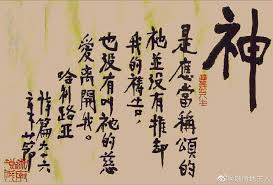 神
是應當稱頌的
祂並沒有推卻
我的禱告，
也沒有叫祂的慈
愛離開我。
哈利路亞
詩篇六六